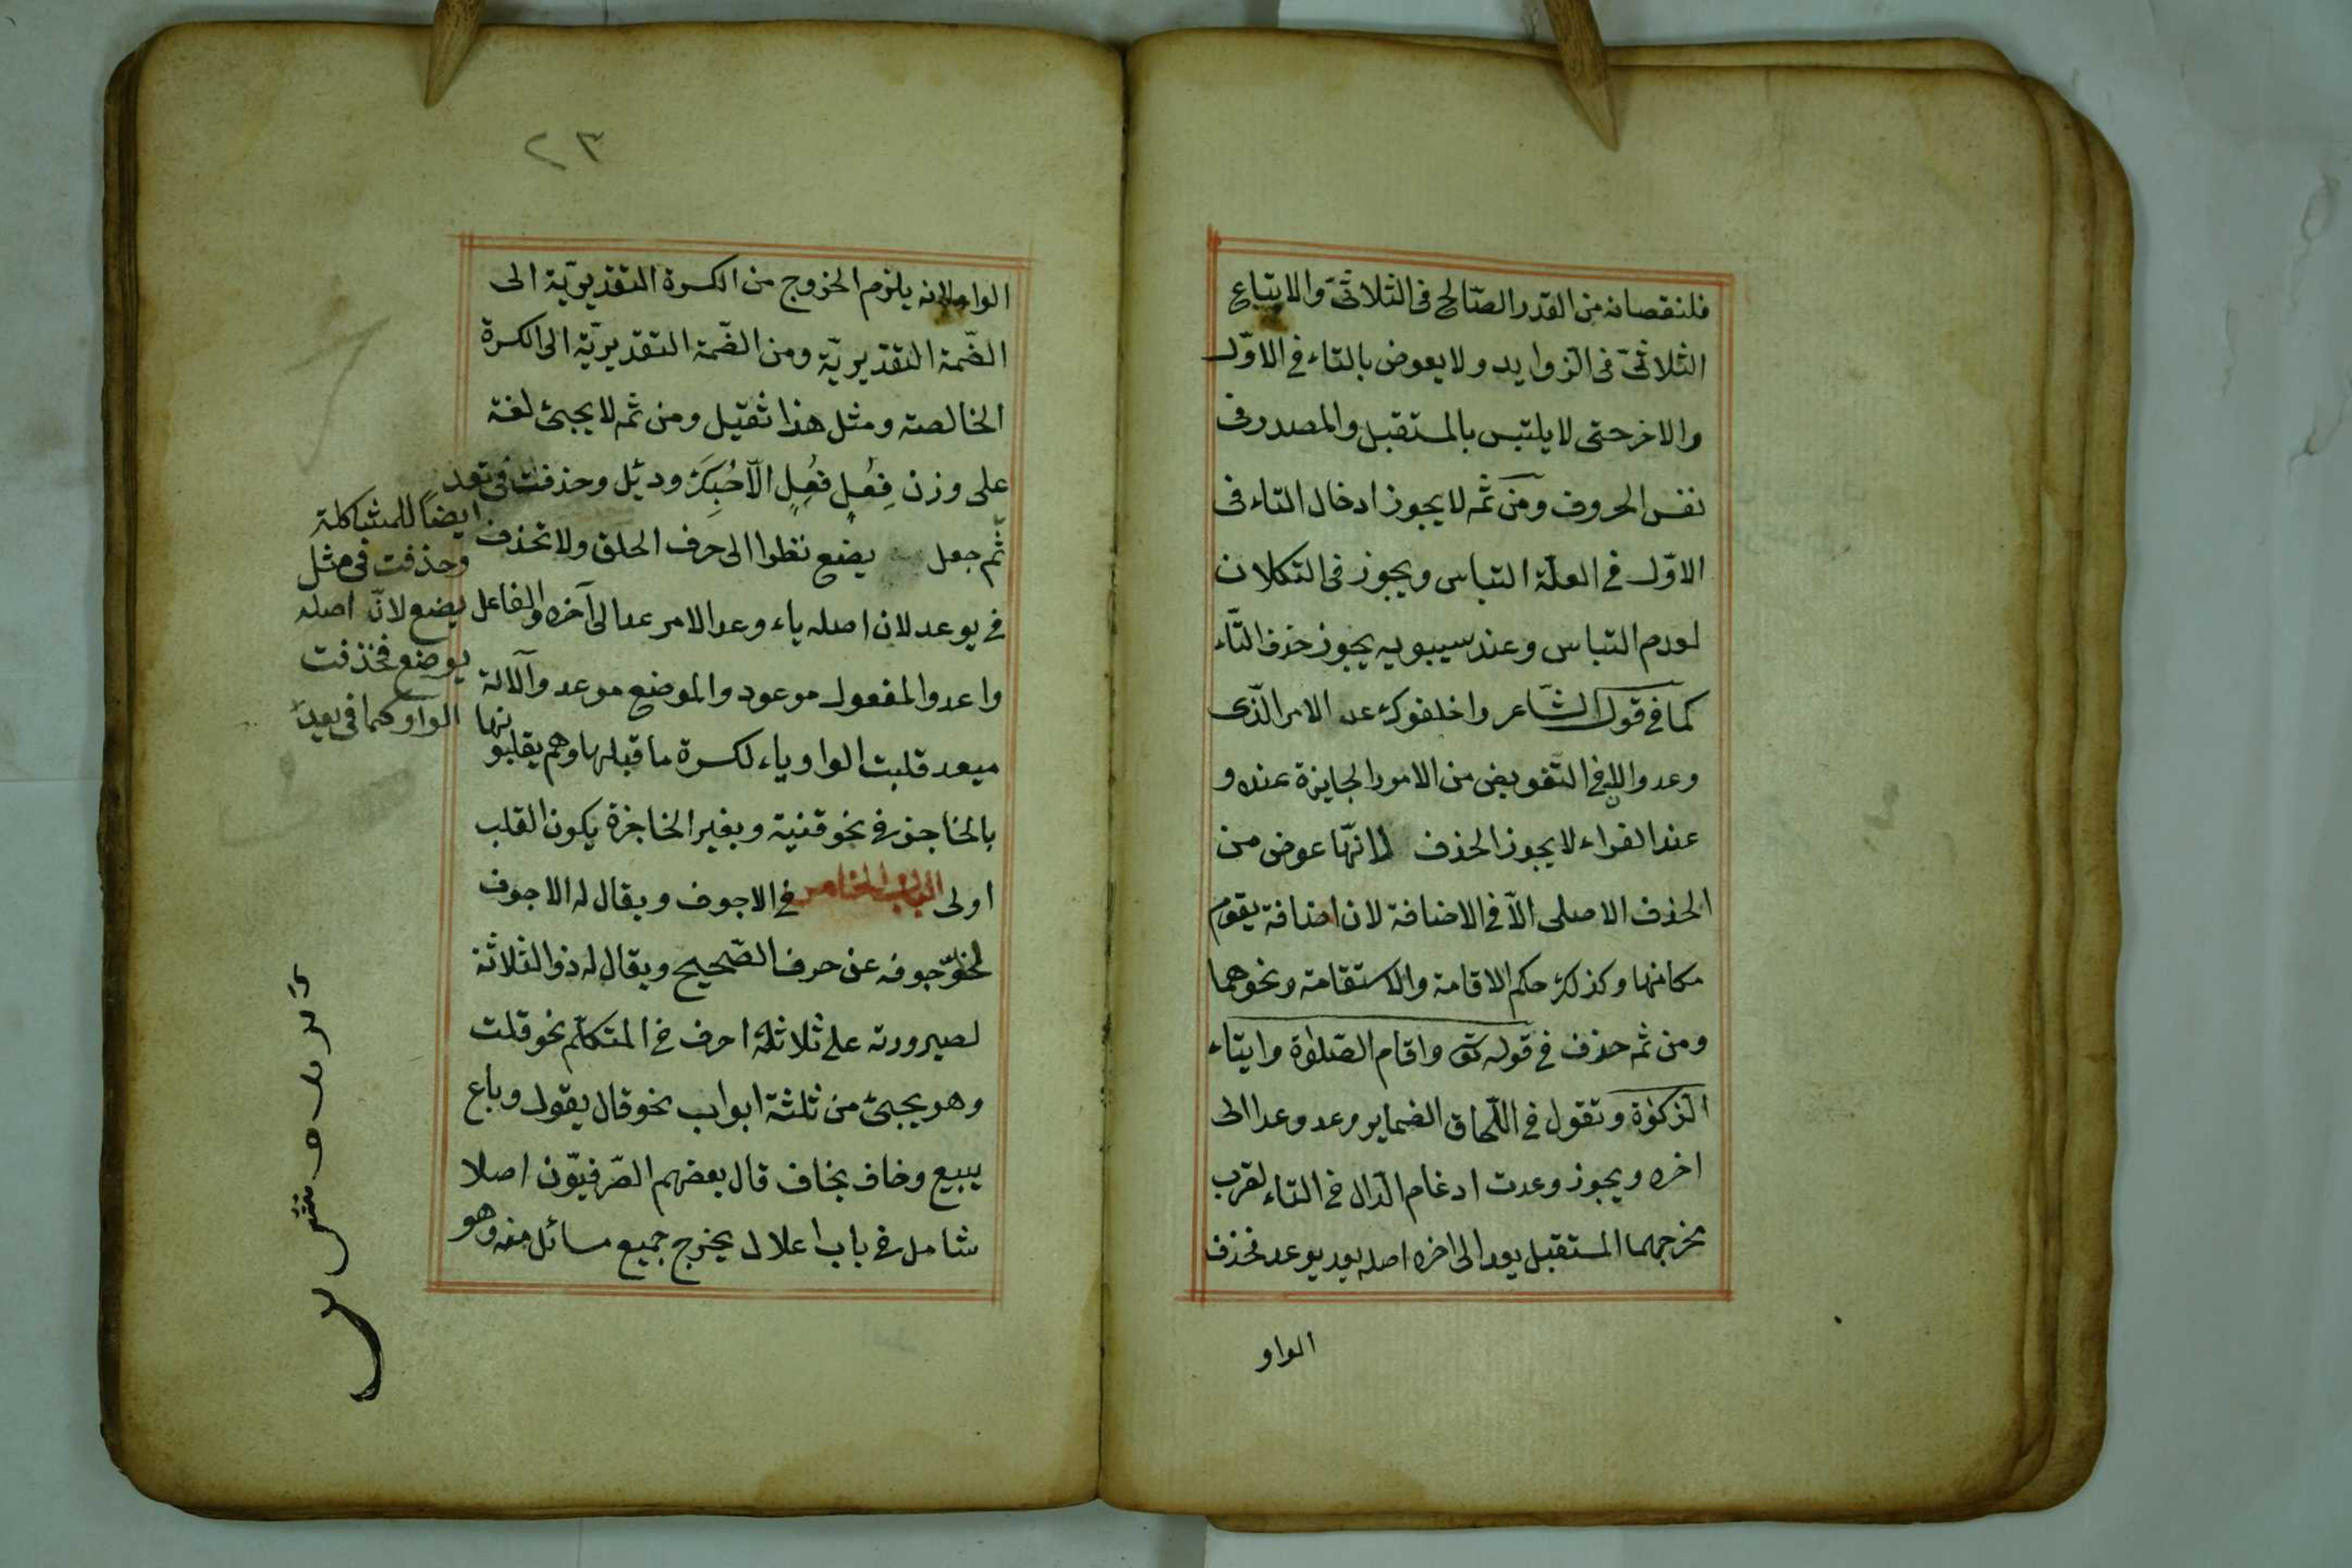 فلنقصانه من القدر الصّالح فى الثلاثىّ والاتباع
الثلاثىّ فى الزوايد ولا يعوض بالتاء فى الاوّل
والاخر حتى لا يلتبس بالمستقبل والمصدر وفى
نفس الحروف ومن ثمه لا يجوز ادخال التاء فى
الاوّل فى العلّة التباس ويجوز فى التكلان
لعدم التباس وعند سيبويه يجوز حذف التّاء
كما فى قول الشّاعر واخلفوك عد الامر الّذى
وعدوا لان التّعويض من الامور الجايزة عنده و
عند الفراء لا يجوز الحذف لانّها عوض من
الحذف الاصلى الّا فى الاضافة لان اضافة يقوم
مكانها وكذلك حكم الاقامة والاستقامة ونحوهما
ومن ثم حذف فى قوله تق واقام الصّلوٰة وايتاء
الزكوٰة وتقول فى اللّحاق الضماير وعد وعدا الى
اخره ويجوز وعدت ادغام الدّال فى التاء لقرب
مخرجهما المستقبل يعد الى اخره اصله يعد يوعد فحذف
الواو
٢٣
الواو لانه يلزم الخروج من الكسرة التقديريّة الى
الضّمة التقديريّة ومن الضّمة التقديريّة الى الكسرة
الخالصة ومثل هذا ثقيل ومن ثمه لا يجىئ لغة
على وزن فِعُلٍ فُعِلٍ الّا حُبِكَ ودئل وحذفت فى تعد
ايضاً للمشاكلة
وحذفت فى مثل
يضع لانّ اصله
يوضع فحذفت
الواو كما فى يعد
ثّم جعل يضع نظرا الى حرف الحلق ولا تحذف
فى يوعد لان اصله ياء وعد الامر عد الى آخره والفاعل
واعد والمفعول موعود والموضع موعد والآلة
ميعد قلبت الواو ياء لكسرة ما قبلها وهم يقلبونها
بالحاجز فى نحو قنية وبغير الحاجزة يكون القلب
اولى الباب الخامس فى الاجوف ويقال له الاجوف
لخلوّ جوفه عن حرف الصّحيح ويقال له ذو الثلاثة
لصيرورته على ثلاثة احرف فى المتكلّم نحو قلت
وهو يجىئ من ثلثة ابواب نحو قال يقول وباع
يبيع وخاف يخاف قال بعضهم الصّرفيّون اصلا
شامل فى باب اعلال يخرج جميع مسائل منه وهو